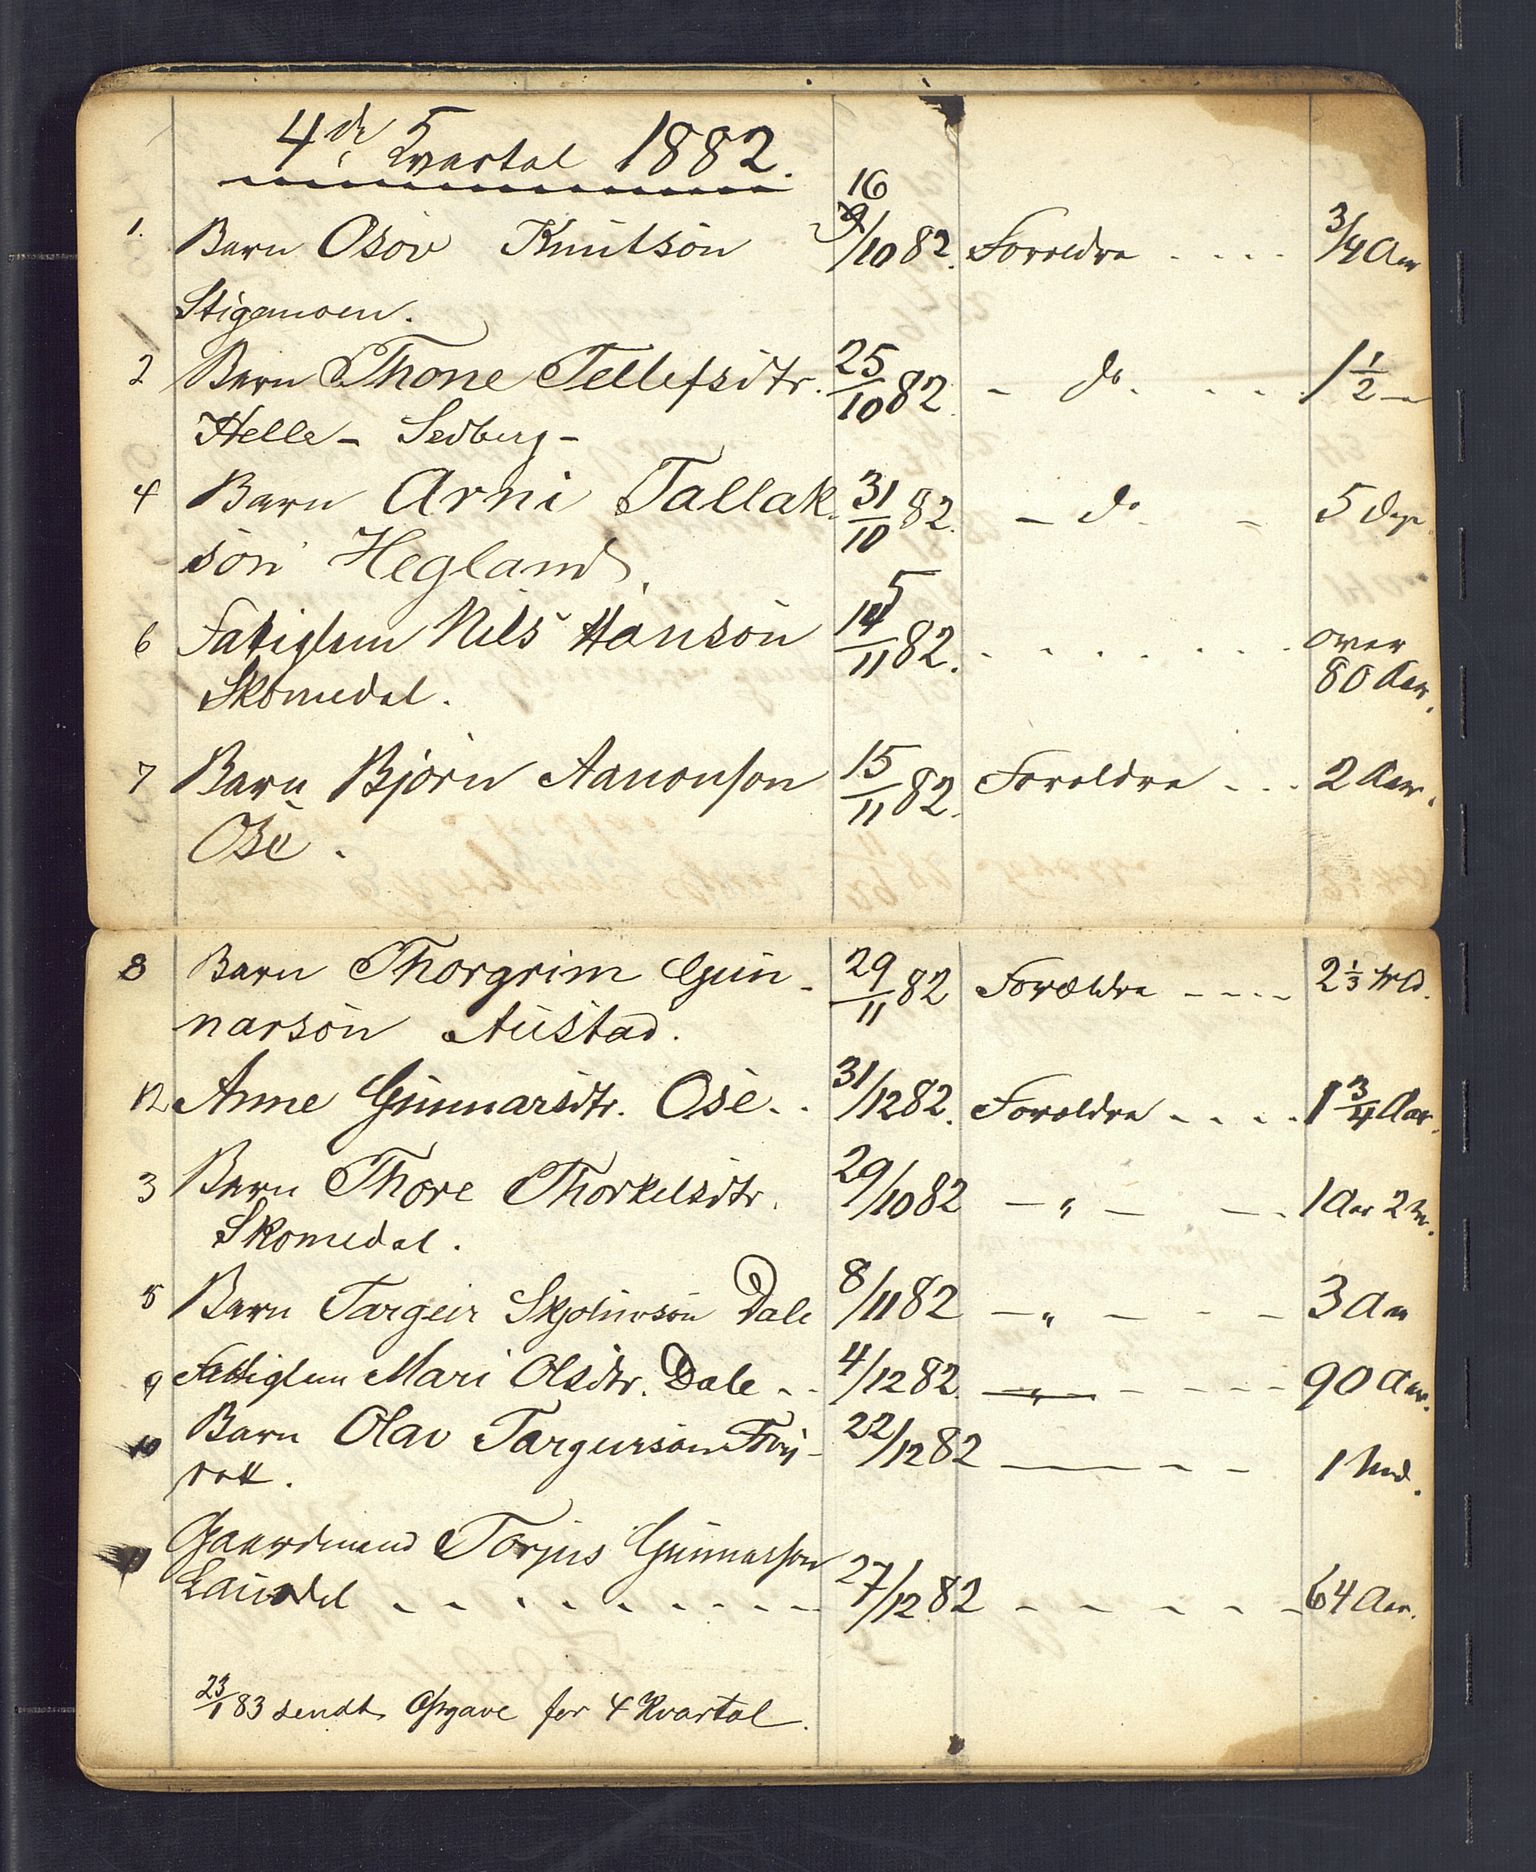 4de Kvartal 1882.
1. Barn Osov Knutson 16/10 82. Foreldre . . . . 3/4 Aar
Stigansen.
2 Barn Thone Tellefsdtr. 25/10 82. - do. . . . 1 1/2 -
Helle - Sedberg -
4 Barn Arni Tallak- 31/10 82. - do - 5 Dage
son Hegland.
6 Fattiglem Nils Hanson 15/11 82. . . . . . . over
Skomedal. 80 Aar.
7 Barn Bjørn Aanonson 15/11 82. Foreldre . . . 2 Aar.
Ose.
8 Barn Thorgrim Gun- 29/11 82 Forældre - - - - 2 1/3 Md.
narson Austad.
12 Anne Gunnarsdtr. Ose. . 31/12 82. Foreldre . . . . 1 3/4 Aar.
3 Barn Thore Thorkelsdtr. 29/10 82 - „ - - . 1 Aar 2 M.
Skomedal.
5 Barn Targeir Dale 8/11 82 - „ - - - 3 Aar
9 Fattiglem Mari Olsdtr. Dale - . 4/12 82. - „ - - - - - 90 Aar.
10 Barn Olav Targeirson Frøy- 22/12 82 - - - - 1 Md.
rak.
11 Gaardmand Torjus Gunnarson
Laudal - - - - - - - - - 27/12 82 - - - - - 64 Aar.
23/1 83 sendt Opgave for 4 Kvartal.